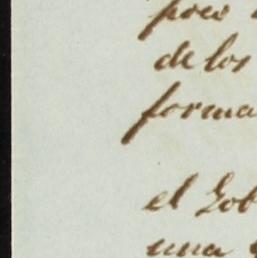 poco
de los
forma
el Gob
una